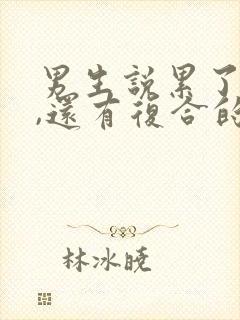 男生說累了
,還有復合的
林冰曉